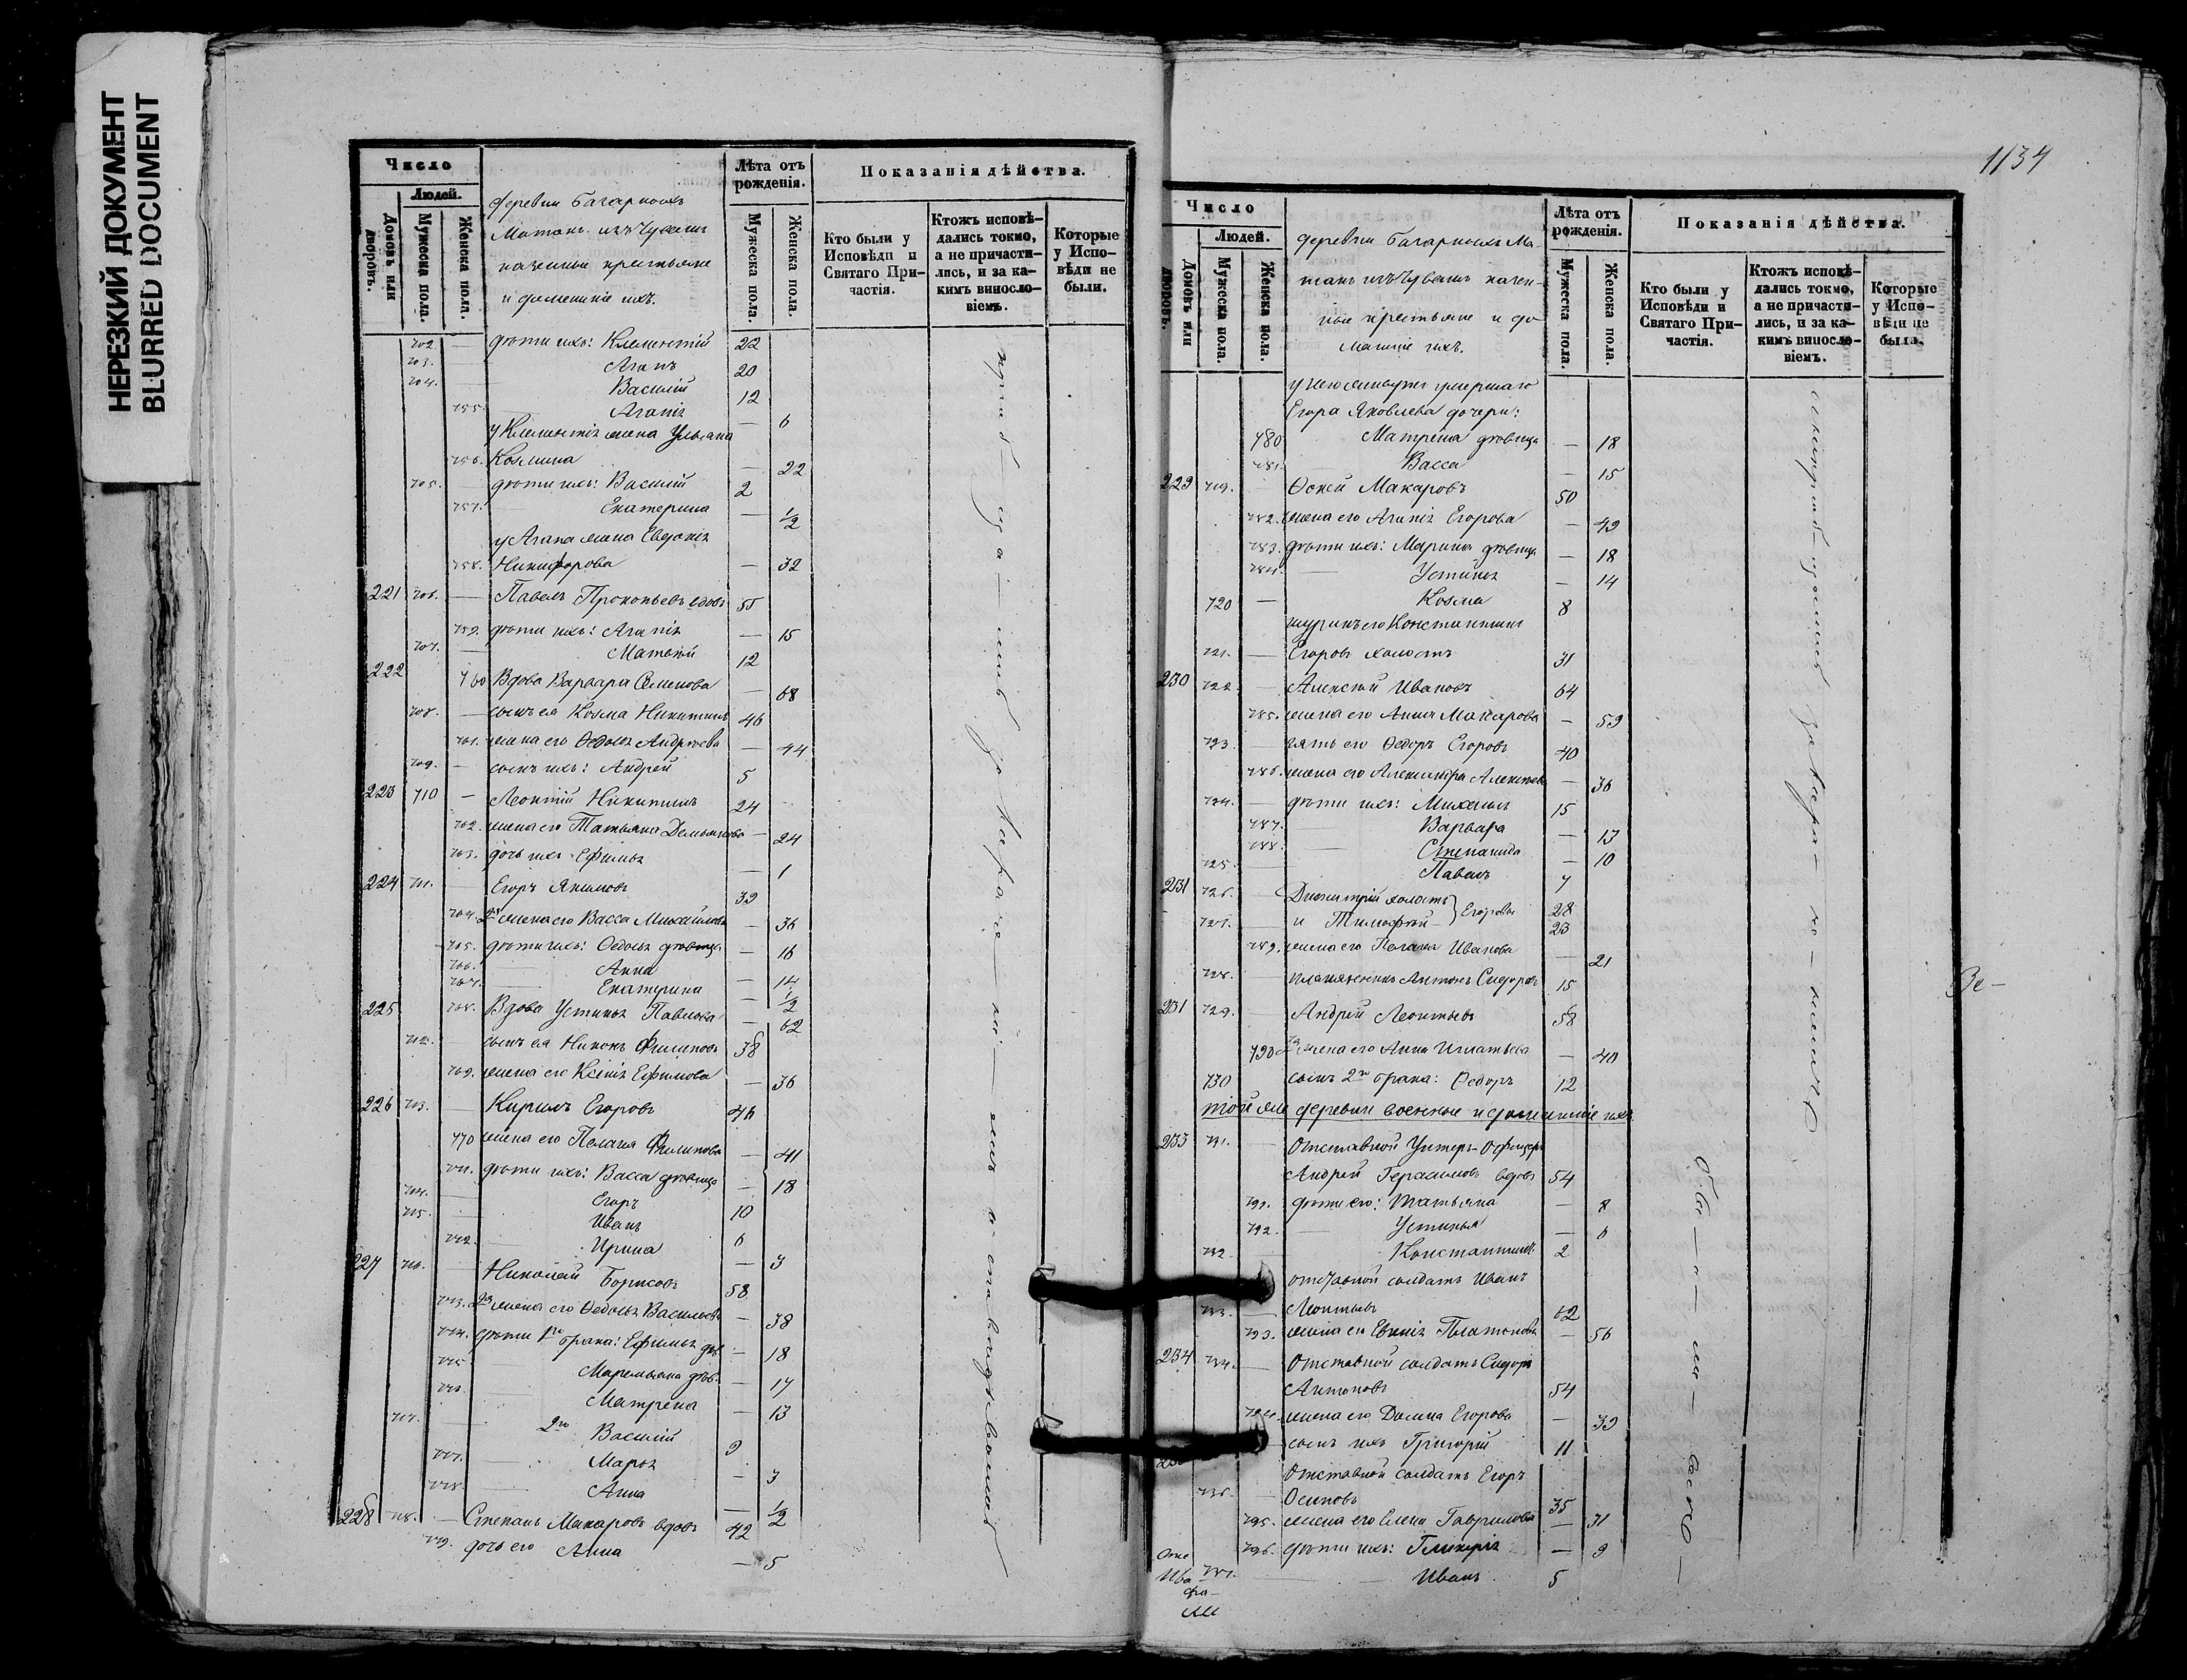 НЕРЕЗКИЙ ДОКУМЕНТ
BLURRED DOCUMENT
Число
Людей.
Домовъ или дворовъ.
Мужеска пола.
Женска пола.
деревни Багарныхъ
Матакъ изъ Чувашъ
казенные крестьяне
и домашніе ихъ.
Лѣта отъ рожденія.
Мужеска пола.
Женска пола.
Показанія дѣйства.
Кто были у Исповѣди и Святаго Причастія.
Ктожъ исповѣдались токмо, а не причастились, и за какимъ винословіемъ.
Которые у Исповѣди не были.
702. — дѣти ихъ: Климентій 22
703. Агапъ 20
704. Василій 12
755. Агапія — 6
у Климентія жена Ульяна
756. Козмина — 22
705. дѣти ихъ: Василій 2
757. Екатерина — 1/2
у Агапа жена Евдокія
758. Никифорова — 32
221 706. — Павелъ Прокопьевъ вдовъ 55
759. дѣти ихъ: Агапія — 15
707. — Матвѣй 12
222 760 Вдова Варвара Семенова — 68
708. — сынъ ея Козма Никитинъ 46
761. жена его Федосья Андреева — 44
709. — сынъ ихъ: Андрей 5
223 710 — Леонтій Никитинъ 24
762. жена его Татьяна Демьянова — 24
763. дочь ихъ Ефимья — 1
224 711. — Егоръ Якимовъ 39
764. 2я жена его Васса Михайлова — 36
765. дѣти ихъ: Федосья дѣвица — 16
766. Анна — 14
767. Екатерина — 1/2
225 768. Вдова Устинья Павлова — 62
712. — сынъ ея Никонъ Филиповъ 38
769. жена его Ксенія Ефимова — 36
226 713. — Кирилъ Егоровъ 46
770 жена его Пелагея Филипова — 41
771. дѣти ихъ: Васса дѣвица — 18
714. — Егоръ 10
715. — Иванъ 6
772. Ирина — 3
227 716. — Николай Борисовъ 58
773. 2я жена его Федосья Васильева — 38
774. дѣти 1го брака: Ефимья дѣв. — 18
775. Маремьяна дѣв. — 17
776. Матрена — 13
717. — 2го Василій 9
777. Марья — 3
778. Анна — 1/2
228 718. — Степанъ Макаровъ вдовъ 42
779. дочь его Анна — 5
1134
Число
Людей.
Домовъ или дворовъ.
Мужеска пола.
Женска пола.
деревни Багарныхъ Ма-
такъ изъ Чувашъ казен-
ные крестьяне и до
машніе ихъ.
Лѣта отъ рожденія.
Мужеска пола.
Женска пола.
Показанія дѣйства.
Кто были у Исповѣди и Святаго Причастія.
Ктожъ исповѣдались токмо, а не причастились, и за какимъ винословіемъ.
Которые у Исповѣди не были.
умершаго
Егора Яковлева дочери:
780 Матрена дѣвица — 18
781. Васса — 15
229 719. — Макаровъ 50
782. жена его Агапія Егорова — 49
783. дѣти ихъ: Марина дѣвица — 18
784. Устинья — 14
720 — Козма 8
шуринъ его Константинъ
721. — Егоровъ холостъ 31
230 722. — Алексѣй Ивановъ 64
785. жена его Анна Макарова — 59
723. — зять его Федоръ Егоровъ 40
786. жена его Александра Алексѣева — 36
724. — дѣти ихъ: Михаилъ 15
787. Варвара — 13
788. Степанида — 10
725. — Павелъ 7
231 726. — Димитрій холостъ 28
727. — и Тимофей } Егоровы 23
789. жена его Пелагея Иванова — 21
728. — племянникъ Антонъ Сидоровъ 15
231 729. — Андрей Леонтьевъ 58
790 2я жена его Анна Игнатьева — 40
730 сынъ 2го брака: Федоръ 12
той же деревни военные и домашніе ихъ
233 731. — Отставной Унтеръ-Офицеръ
Андрей Герасимовъ вдовъ 54
791. дѣти его: Татьяна — 8
792. Устинья — 6
732 Константинъ 2
отставной солдатъ Иванъ
733. — Леонтьевъ 62
793. жена его Платонова — 56
234 734. — Отставной солдатъ Сидоръ
Антоновъ 54
794. жена его Домна Егорова — 39
сынъ ихъ Григорій 11
Отставной солдатъ Егоръ
736. — Осиповъ 35
795. жена его Елена Гаврилова — 31
796. дѣти ихъ: Гликерія — 9
737. — Иванъ 5